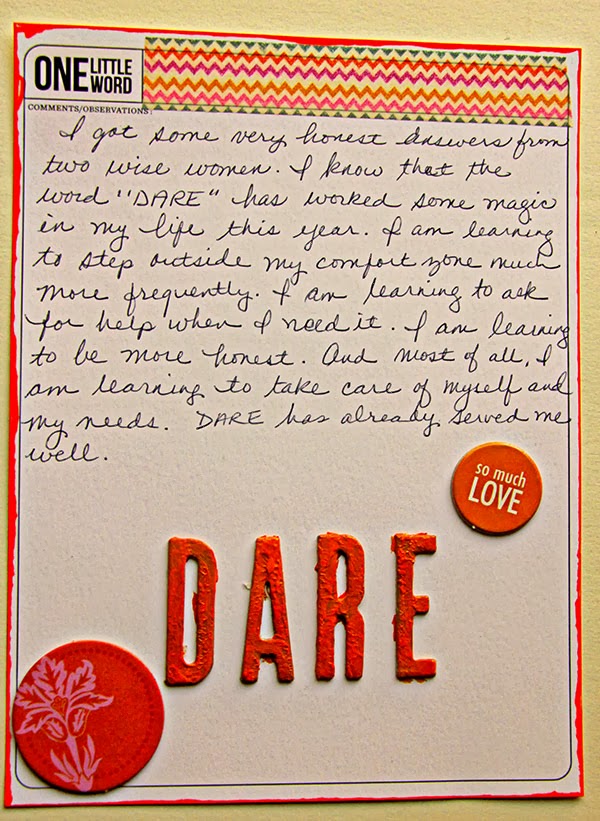 ONE LITTLE WORD
COMMENTS/OBSERVATIONS:
I got some very honest answers from
two wise women. I know that the
word "DARE" has worked some magic
in my life this year. I am learning
to step outside my comfort zone much
more frequently. I am learning to ask
for help when I need it. I am learning
to be more honest. And most of all, I
am learning to take care of myself and
my needs. DARE has already served me
well.
so much
LOVE
DARE